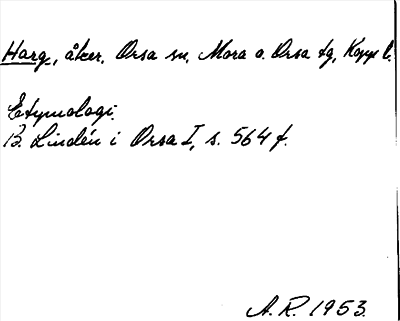 Harg, åker. Orsa sn, Mora o. Orsa tg, Kopp l.
Etymologi.
B. Lindén i Orsa I, s. 564 f.
A. R. 1953.